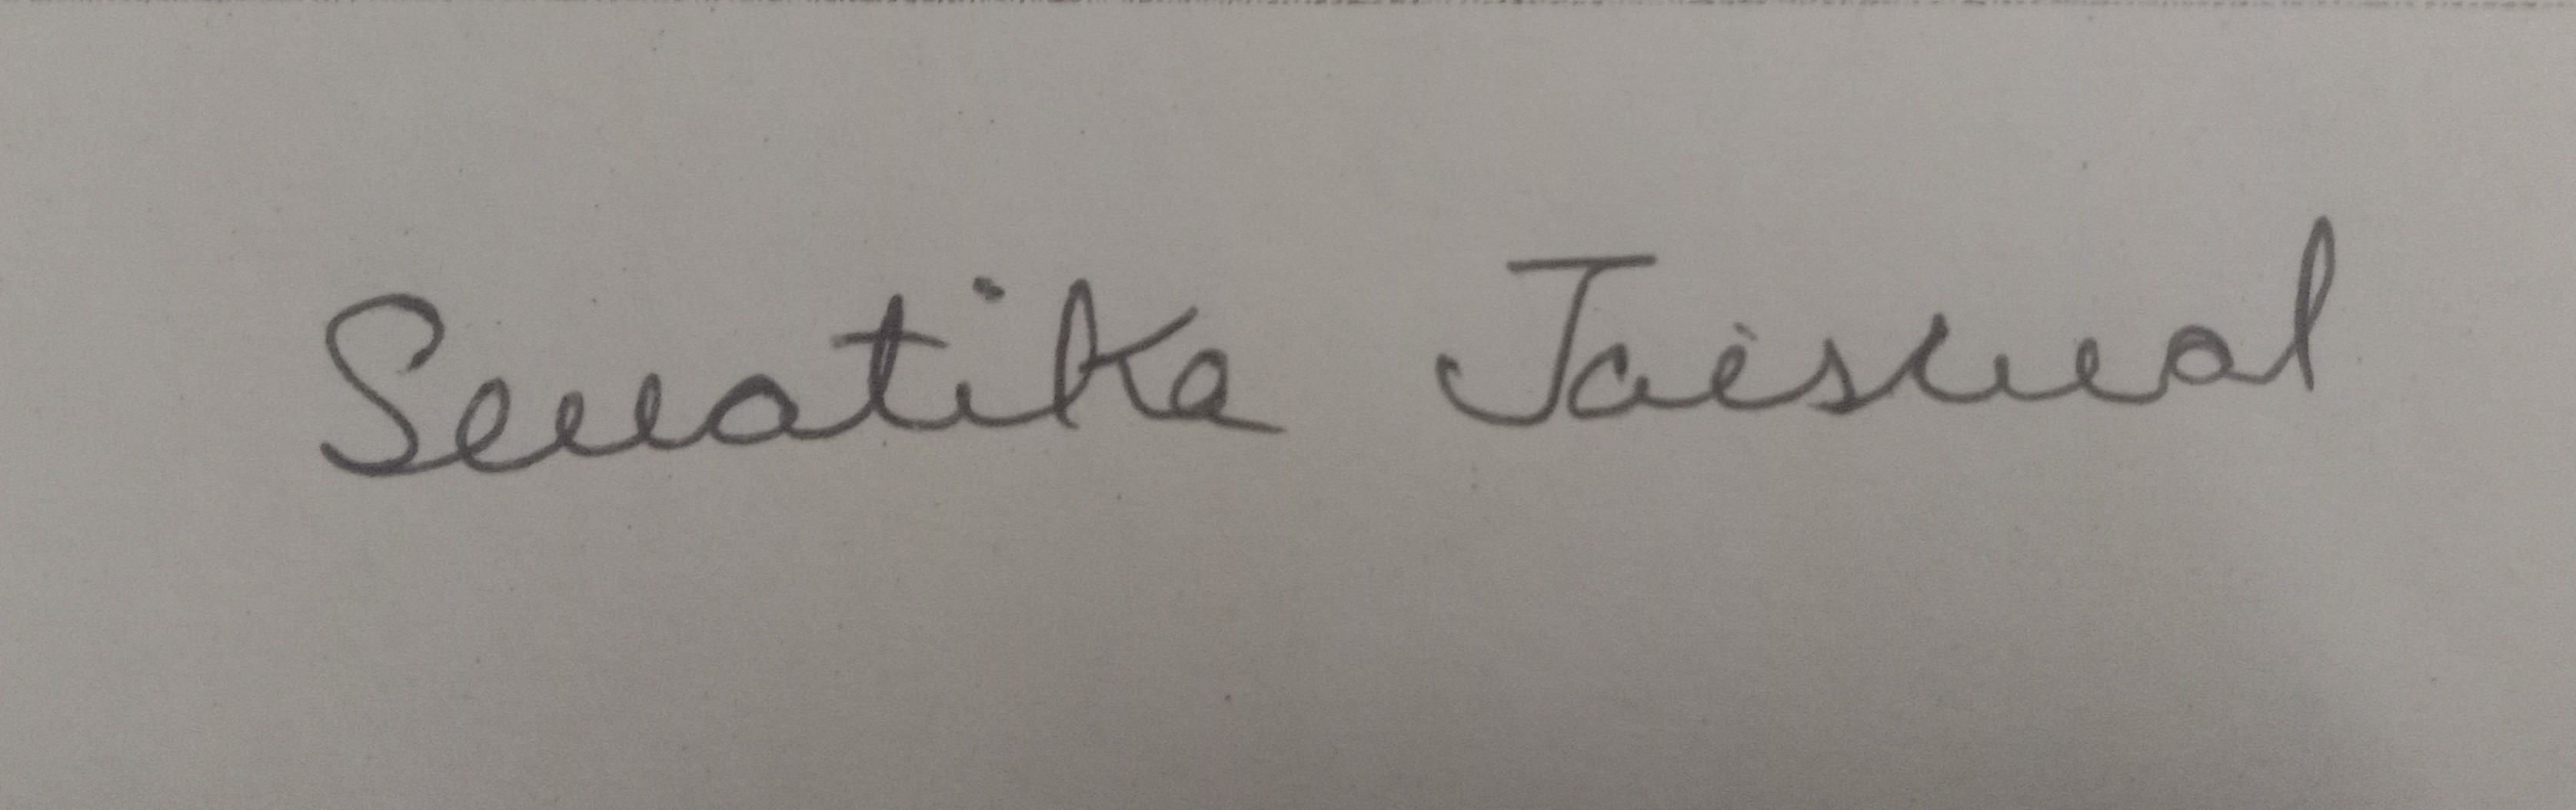 Swatika Jaiswal